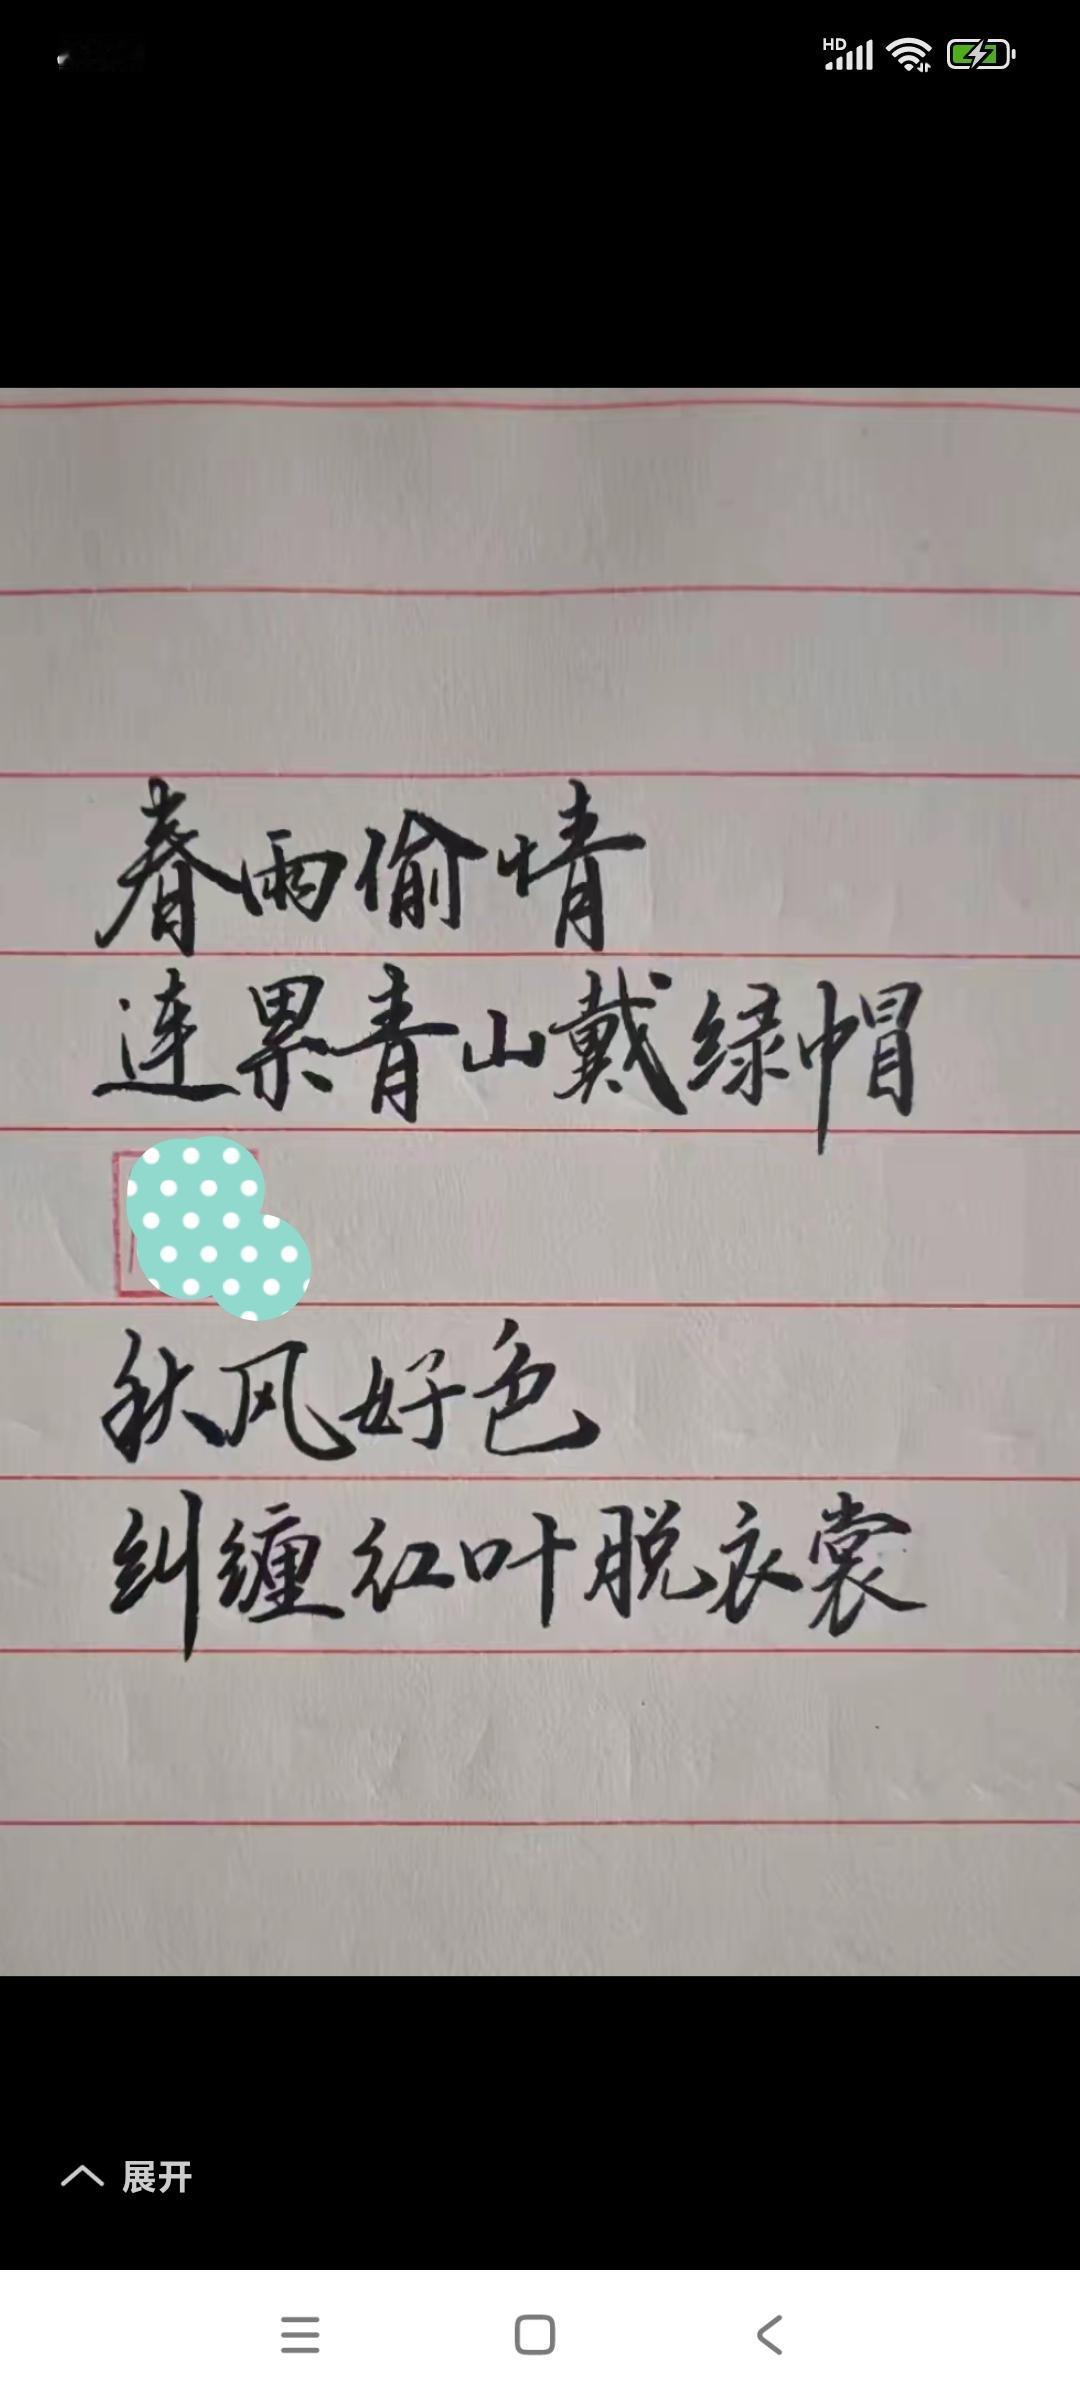 HD
春雨偷情
连累青山戴绿帽
秋风好色
纠缠红叶脱衣裳
展开